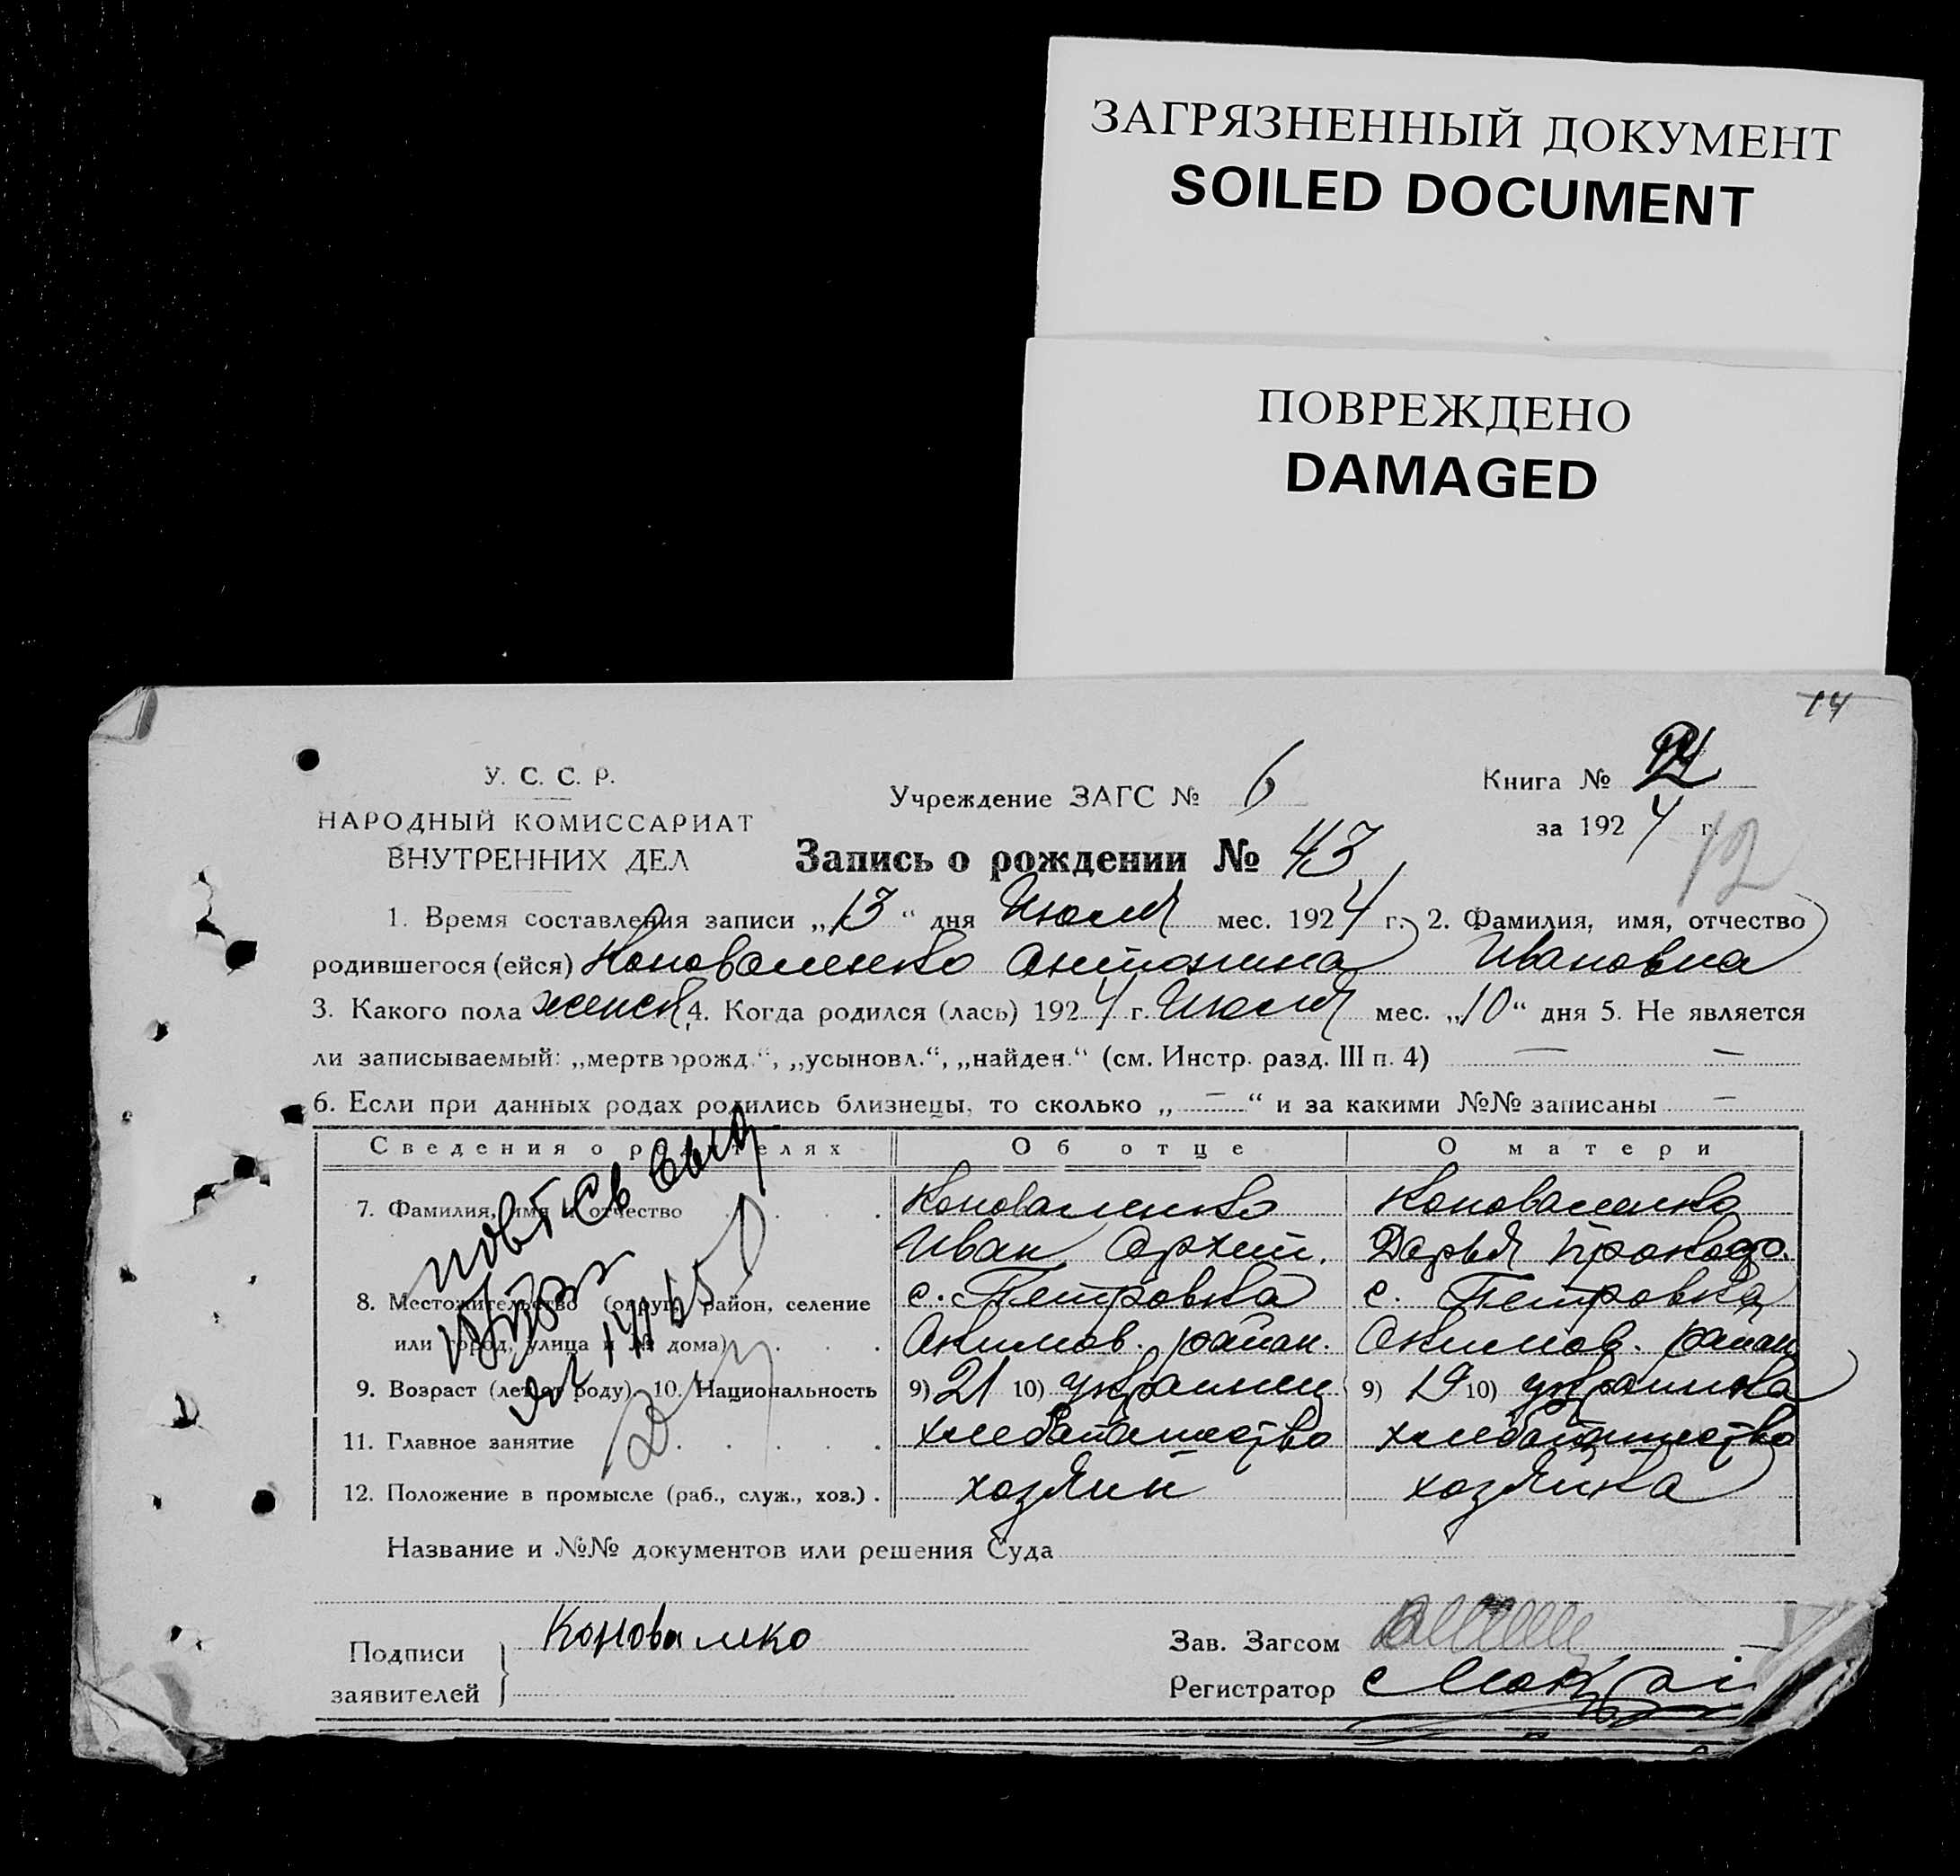 ЗАГРЯЗНЕННЫЙ ДОКУМЕНТ
SOILED DOCUMENT
ПОВРЕЖДЕНО
DAMAGED
14
У. С. С. Р.
НАРОДНЫЙ КОМИССАРИАТ
ВНУТРЕННИХ ДЕЛ
Учреждение ЗАГС № 6
Книга №
за 1924 г.
12
Запись о рождении № 43
1. Время составления записи „13“ дня Июля мес. 1924 г. 2. Фамилия, имя, отчество
родившегося (ейся) Коноваленко Антонина Ивановна
3. Какого пола женск 4. Когда родился (лась) 1924 г. Июля мес. „10“ дня 5. Не является
ли записываемый: „мертворожд.“, „усыновл.“, „найден.“ (см. Инстр. разд. III п. 4) — —
6. Если при данных родах родились близнецы, то сколько „—“ и за какими №№ записаны —
Сведения о родителях Об отце О матери
7. Фамилия, имя и отчество Коноваленко Коноваленко
Иван Архип. Дарья
8. Местожительство (округ, район, селение с. Петровка с. Петровка
или город, улица и № дома) Акимов. район. Акимов. район
9. Возраст (лет от роду) 10. Национальность 9) 21 10) украинец 9) 19 10) украинка
11. Главное занятие хлебопашество хлебопашество
12. Положение в промысле (раб., служ., хоз.) хозяин хозяйка
повт св выд
Название и №№ документов или решения Суда
Подписи заявителей Коновалнко
Зав. Загсом
Регистратор